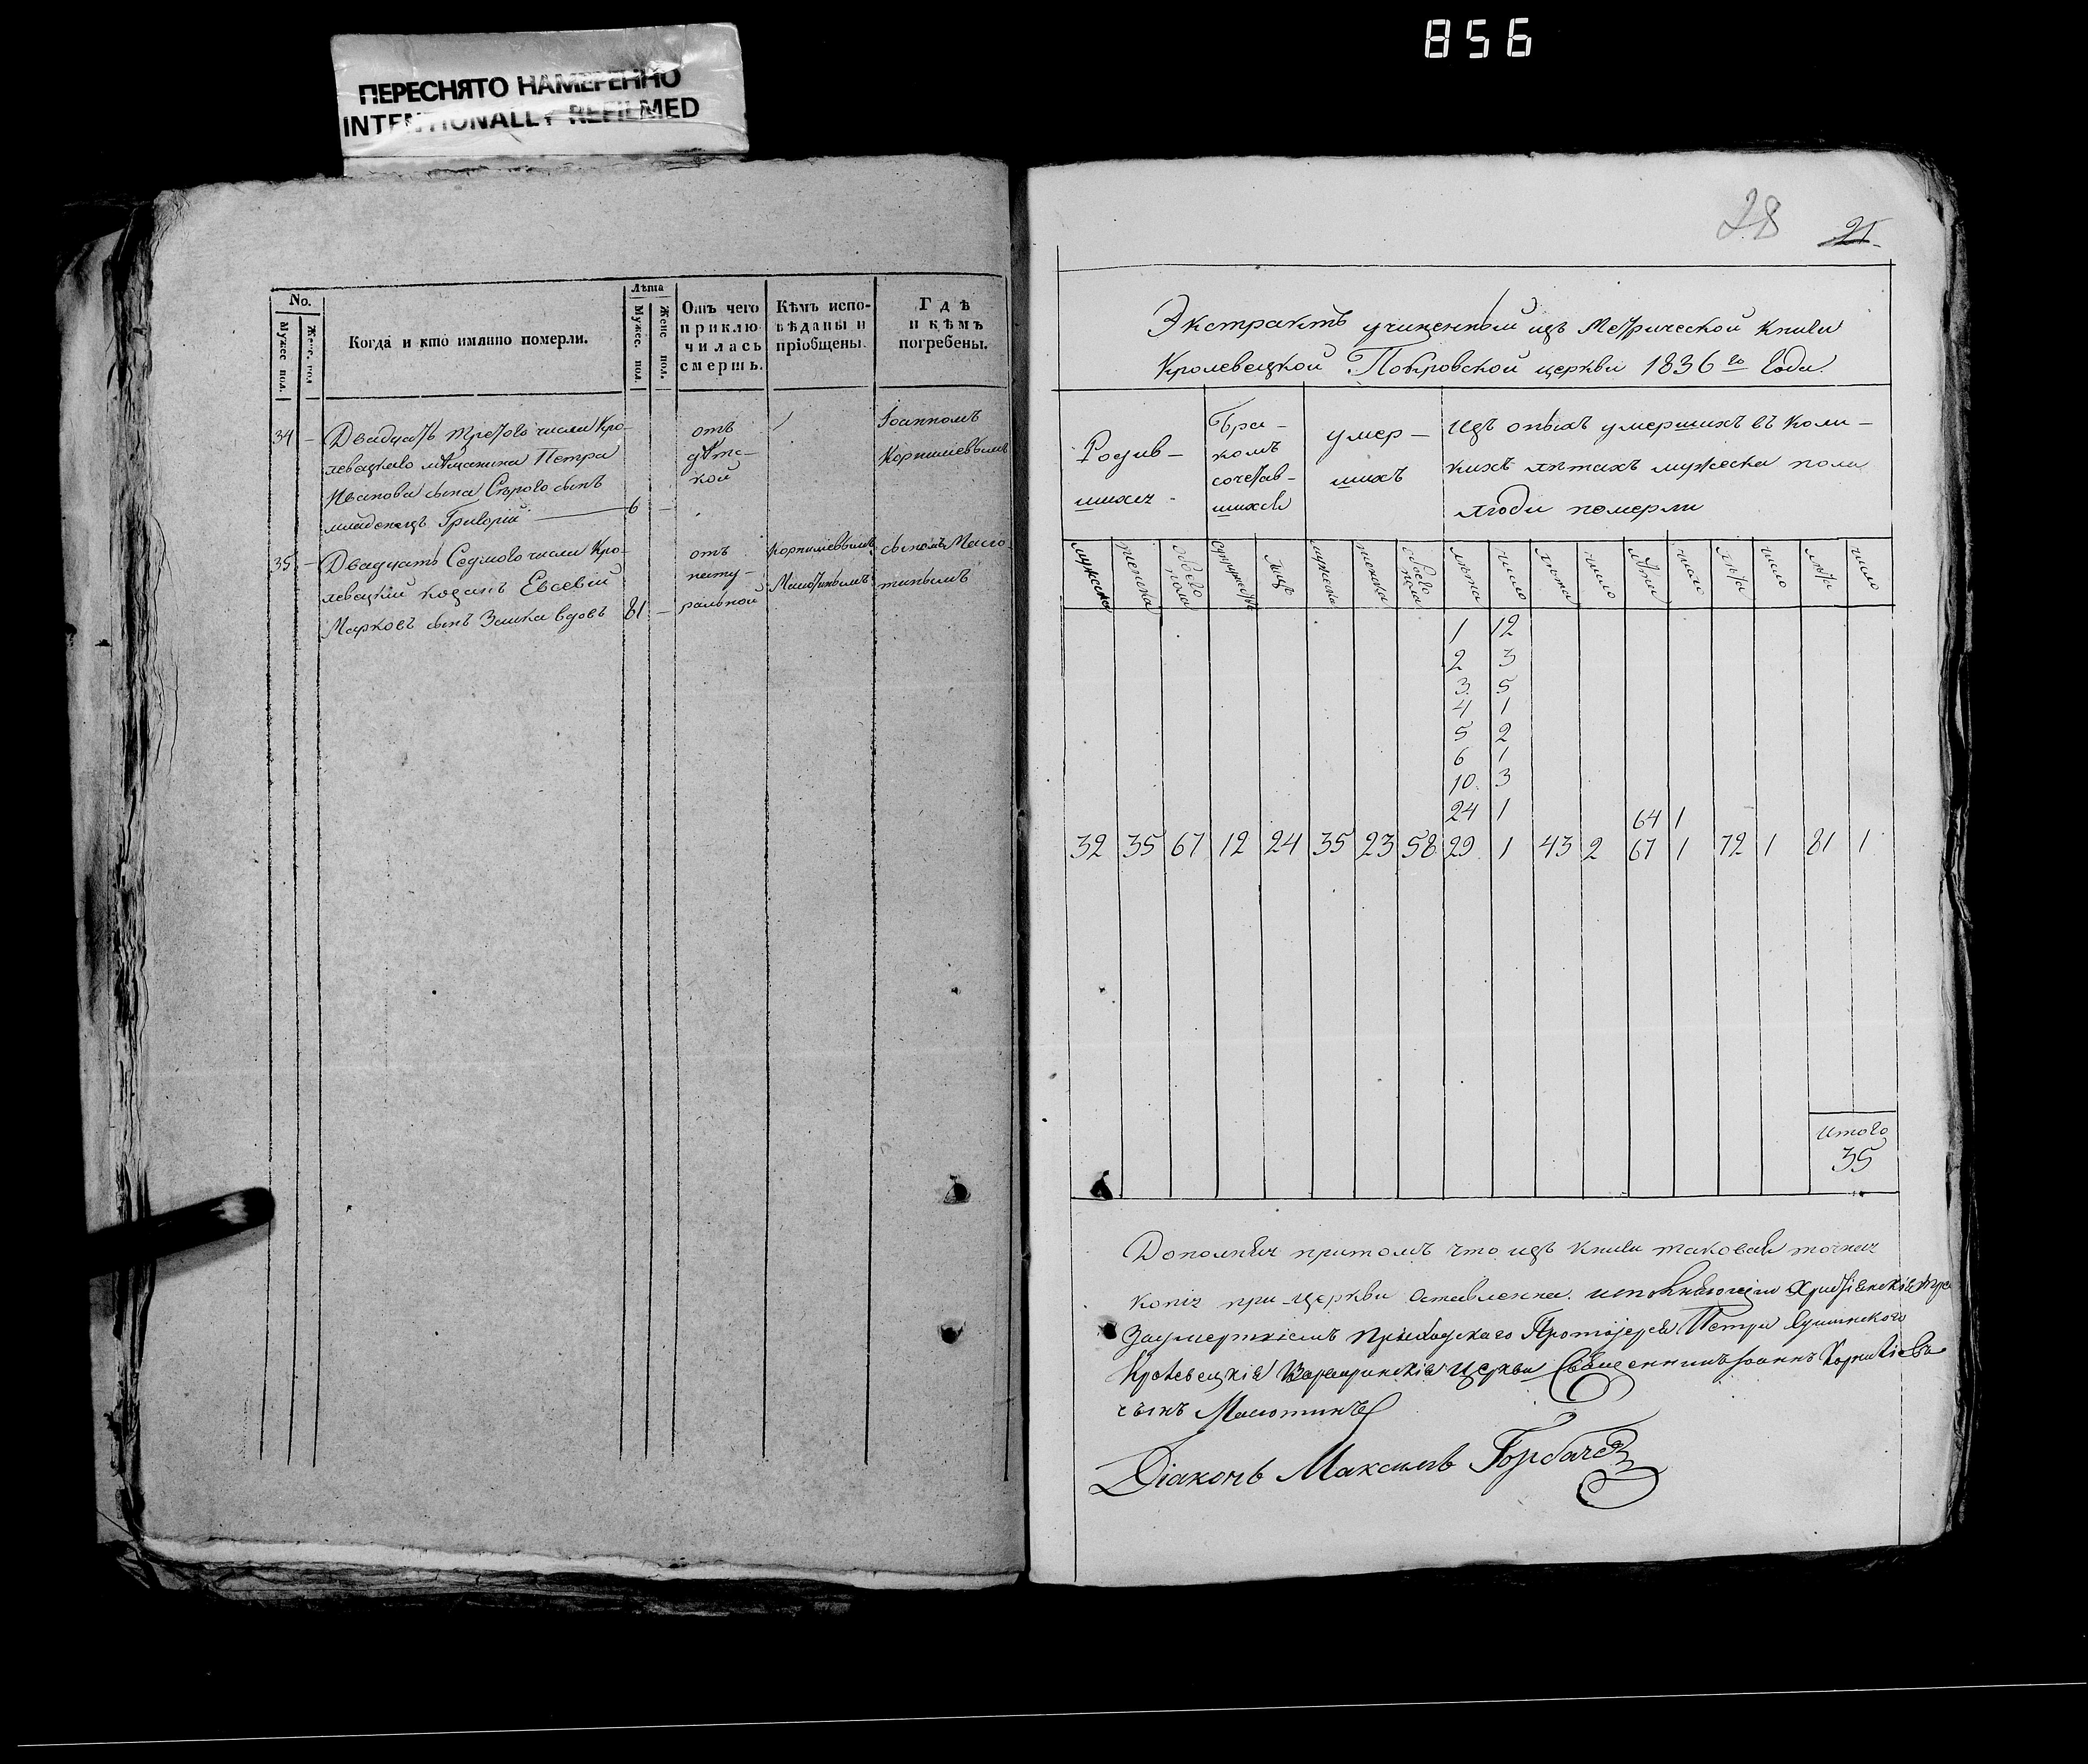 856
ПЕРЕСНЯТО НАМЕРЕННО
INTENTIONALLY REFILMED
No.
Мужес. пол.
Женс. пол.
Когда и кто имянно померли.
Лѣта
Мужес. пол.
Женс. пол.
Отъ чего
приклю
чилась
смерть.
Кѣмъ испо-
вѣданы и
пріобщены.
Гдѣ
и кѣмъ
погребены.
34 – Двадцать третого числа Кро-
левецкаго мѣщанина Петра
Иванова сына Сѣрого сынъ
младенецъ Григорій 6 –
отъ
дѣтс-
кой
Іоанномъ
Корниліевымъ
35 – Двадцать Седмого числа Кро-
левецкій козакъ Евсевій
Марковъ сынъ Заика вдовъ 81 –
отъ
нату-
ральной
Корниліевымъ
Малютинымъ
сыномъ Малю
тинымъ
28
21.
Экстрактъ учиненный изъ Метрической книги
Кролевецкой Покровской церкви 1836го Года
Родив-
шихся
Бра-
комъ
сочетав-
шихся
умер-
шихъ
Изъ оныхъ умершихъ въ коли-
кихъ лѣтахъ мужеска пола
люди померли
мужеска
женска
обоего пола
супружествъ
лицъ
мужеска
женска
обоего пола
лѣта
число
лѣта
число
лѣта
число
лѣта
число
лѣта
число
1 12
2 3
3 5
4 1
5 2
6 1
10 3
24 1 64 1
32 35 67 12 24 35 23 58 29 1 43 2 67 1 72 1 81 1
Итого
35
притомъ что изъ книги таковая точная
копія при церкви оставленна. исполняющій
Приходскаго Протоіерея Петра
церкви Священникъ Іоаннъ Корниліевъ
сынъ Малютинъ
Діаконъ Максимъ Горбачев